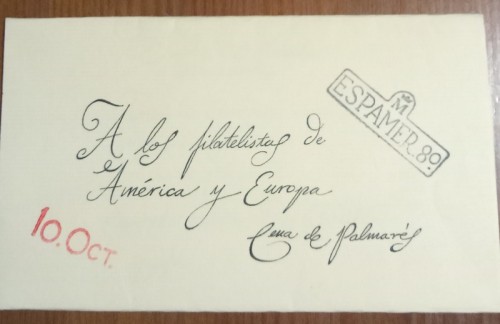 M
ESPAMER.80
A los filatelistas de
América y Europa
Cena de Palmarés
10.OCT.